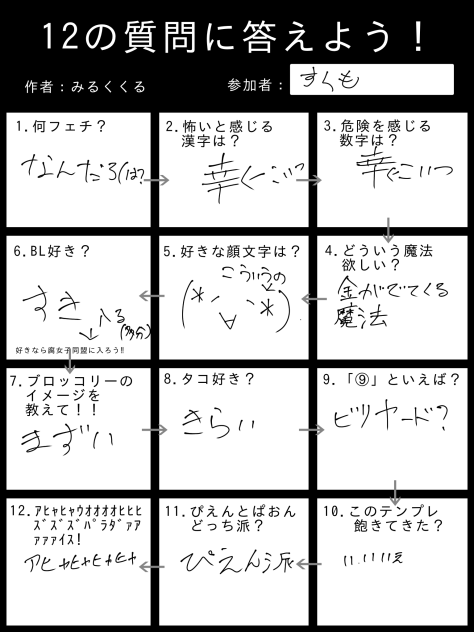 12の質問に答えよう！
作者：みるくくる
参加者：すくも
1.何フェチ？
なんだろ(は?
2.怖いと感じる
漢字は？
幸←こいつ
3.危険を感じる
数字は？
幸←こいつ
4.どういう魔法
欲しい？
金がでてくる
魔法
5.好きな顔文字は？
こういうの
6.BL好き？
すき
入る
(多分)
好きなら腐女子同盟に入ろう!!
7.ブロッコリーの
イメージを
教えて！！
まずい
8.タコ好き？
きらい
9.「⑨」といえば？
ビリヤード?
10.このテンプレ
飽きてきた？
いいいえ
11.ぴえんとぱおん
どっち派？
ぴえん派
12.ｱﾋｬﾋｬｳｵｵｵｵﾋﾋﾋ
ｽﾞｽﾞｽﾞﾊﾟﾗﾀﾞｧｱ
ｧｧｧｲｽ!
アヒャヒャヒャヒャ